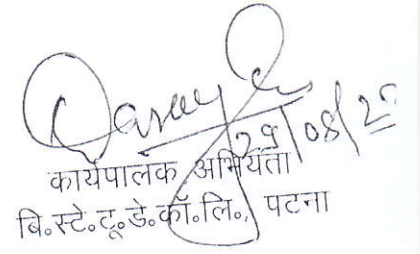 29/08/22
कार्यपालक अभियंता
बि.स्टे.टू.डे.कॉ.लि., पटना